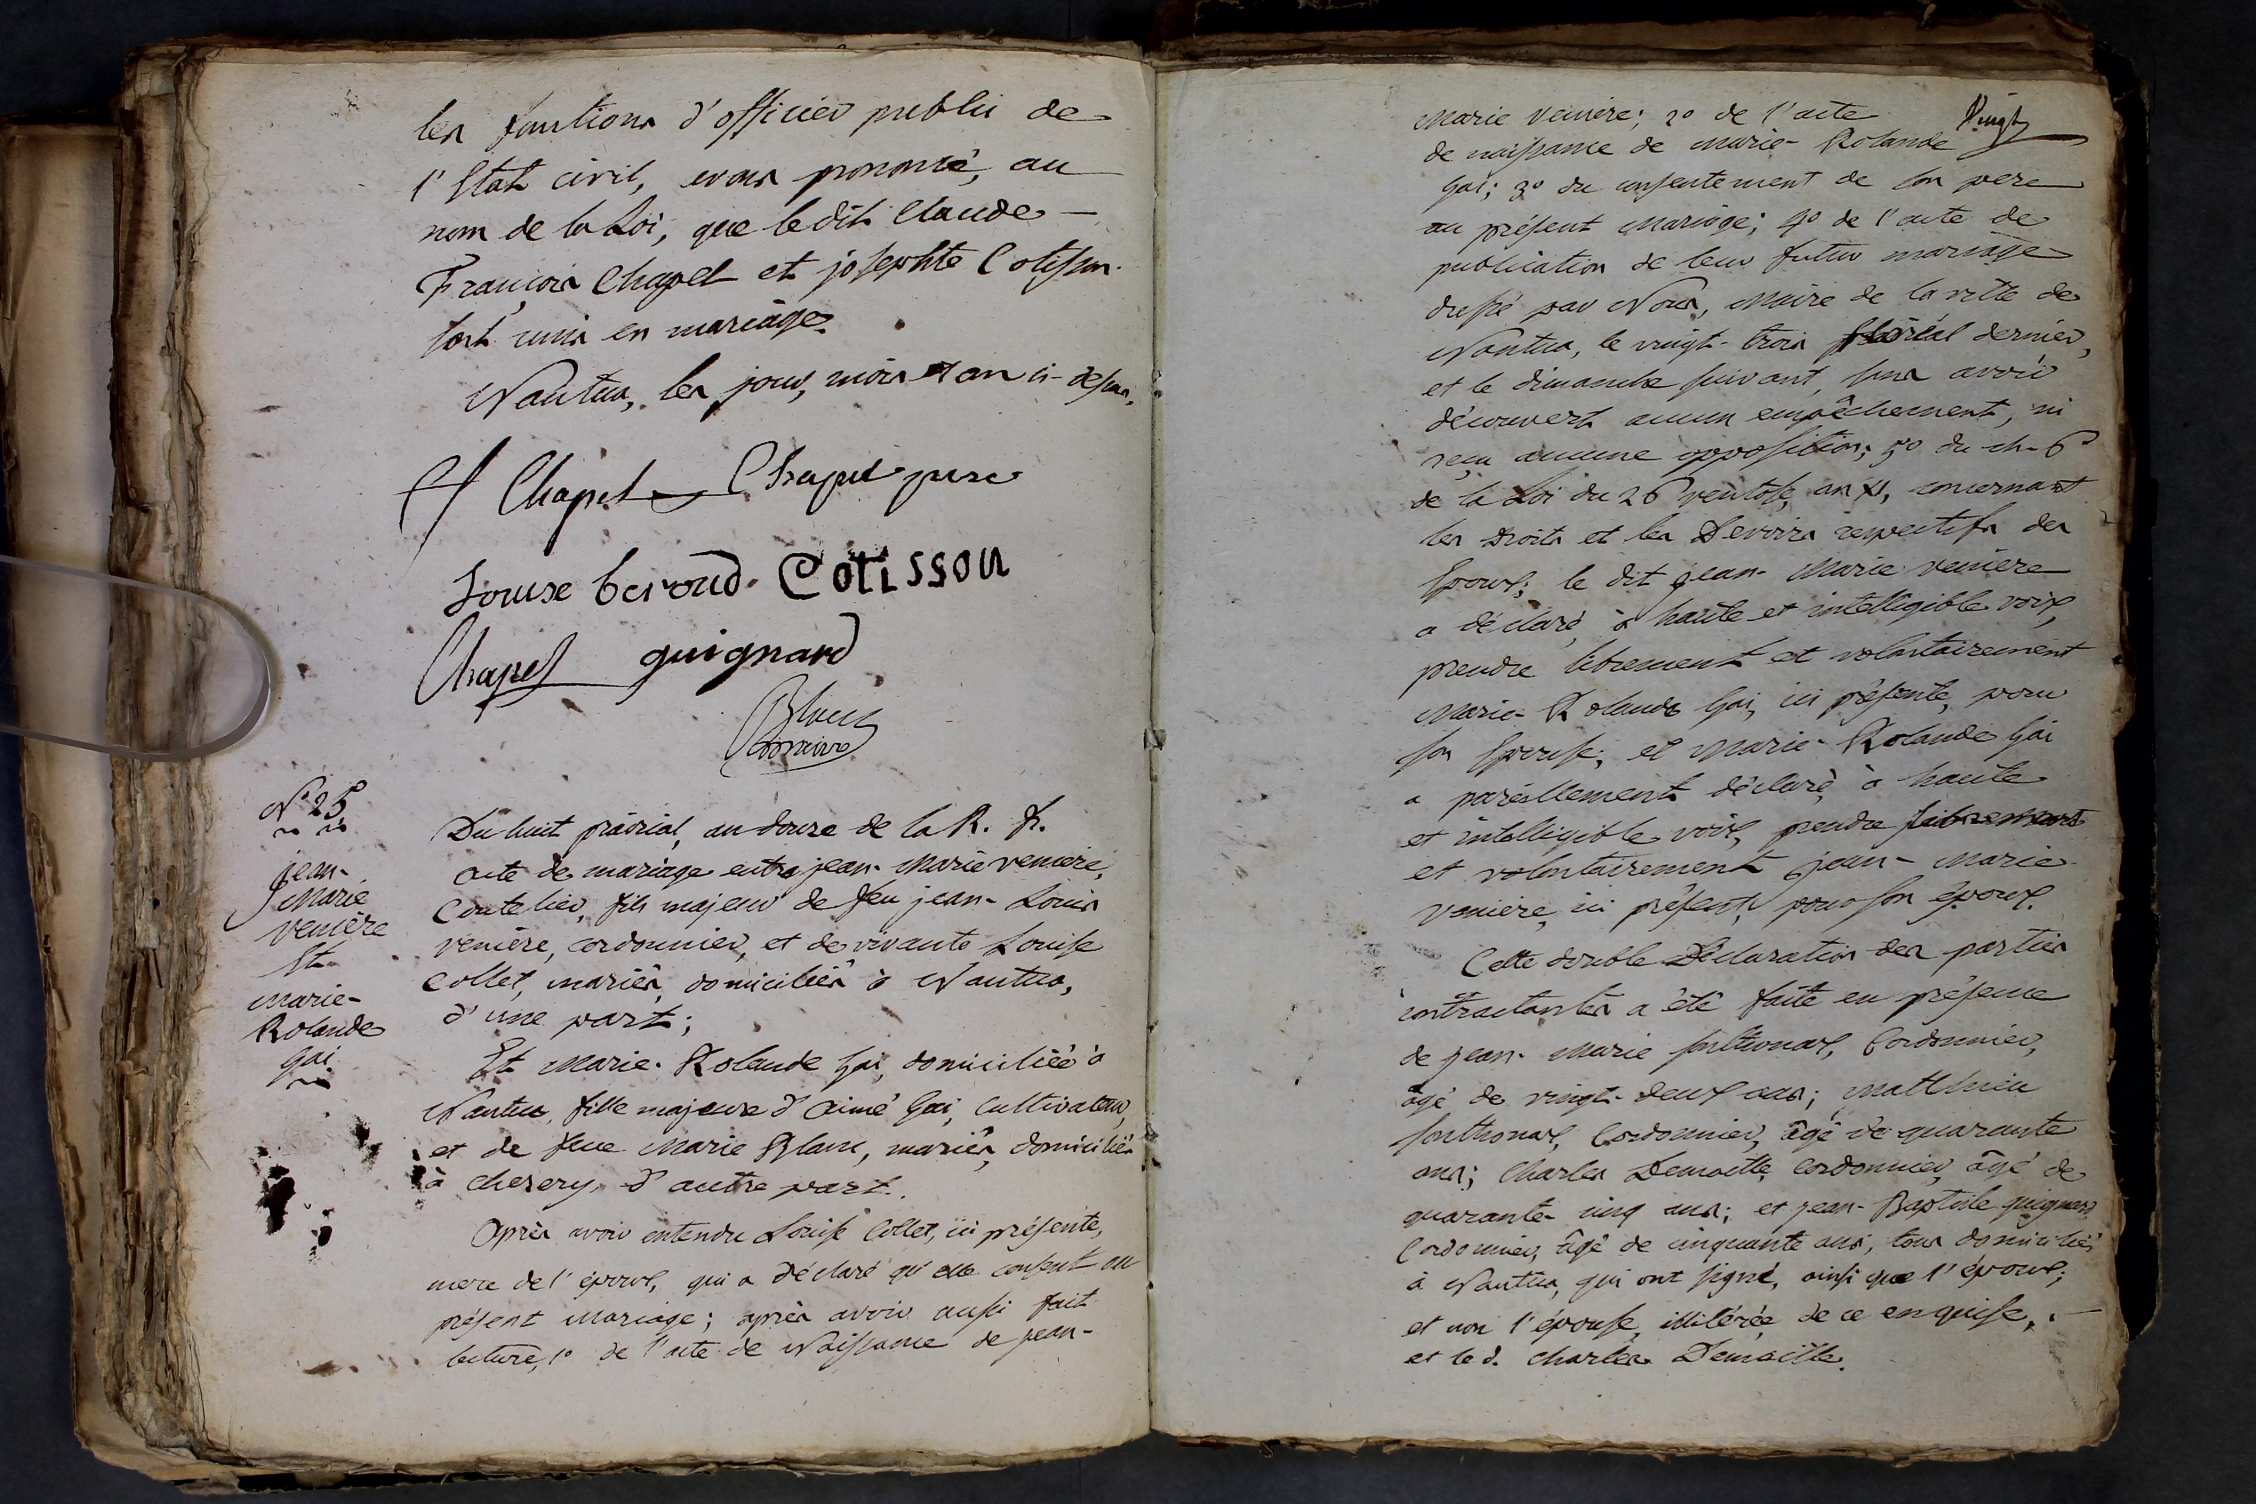 les fonctions d'officier public de
l'Etat civil, avons prononcé, au
nom de la Loi, que le dit Claude
François Chapel et josephte Cotisson
sont unis en mariage.
Nantua, les jour, mois et an ci-dessus.
Chapel Chapel pere
Louise beroud Cotisson
Chapel guignard
Blanc
maire
N° 25
jean-
Marie
veniere
Et
marie-
Rolande
gai.
Du huit prairial, an douze de la R. F.
acte de mariage entre jean-Marie veniere,
Coutelier, fils majeur de feu jean-Louis
veniere, cordonnier, et de vivante Louise
Collet, mariés, domiciliés à Nantua,
d'une part;
Et Marie-Rolande Gai, domiciliée à
Nantua, fille majeure d'Aimé Gai, Cultivateur,
et de feue Marie Blanc, mariés, domiciliés
à Chesery, d'autre part.
Après avoir entendu Louise Collet, ici présente,
mere de l'époux, qui a déclaré qu'elle consent au
présent Mariage; après avoir aussi fait
lecture, 1° de l'acte de Naissance de jean-
Vingt
Marie veniere; 2° de l'acte
de naissance de marie-Rolande
Gai; 3° du consentement de son pere
au présent Mariage; 4° de l'acte de
publication de leur futur mariage
dressé par Nous, Maire de la ville de
Nantua, le vingt-trois floréal dernier,
et le dimanche suivant, sans avoir
découvert aucun empêchement, ni
reçu aucune opposition; 5° du ch. 6
de la Loi du 26 ventose, an XI, concernant
les Droits et les Devoirs respectifs des
Epoux; le dit jean-Marie veniere
a déclaré, à haute et intelligible voix,
prendre librement et volontairement
Marie-Rolande Gai, ici présente, pour
son Epouse; et Marie-Rolande Gai
a pareillement déclaré, à haute
et intelligible voix, prendre librement
et volontairement jean-Marie
Veniere, ici présent, pour son époux.
Cette double Déclaration des parties
contractantes a été faite en présence
de jean-Marie sonthonax, Cordonnier,
âgé de vingt-deux ans; Matthieu
sonthonax, Cordonnier, âgé de quarante
ans; Charles Demaille, Cordonnier, âgé de
quarante-cinq ans; et jean-Baptiste guignard,
Cordonnier, âgé de cinquante ans, tous domiciliés
à Nantua, qui ont signé, ainsi que l'époux;
et non l'épouse, illitérée, de ce enquise,
et le d. Charles Demaille.